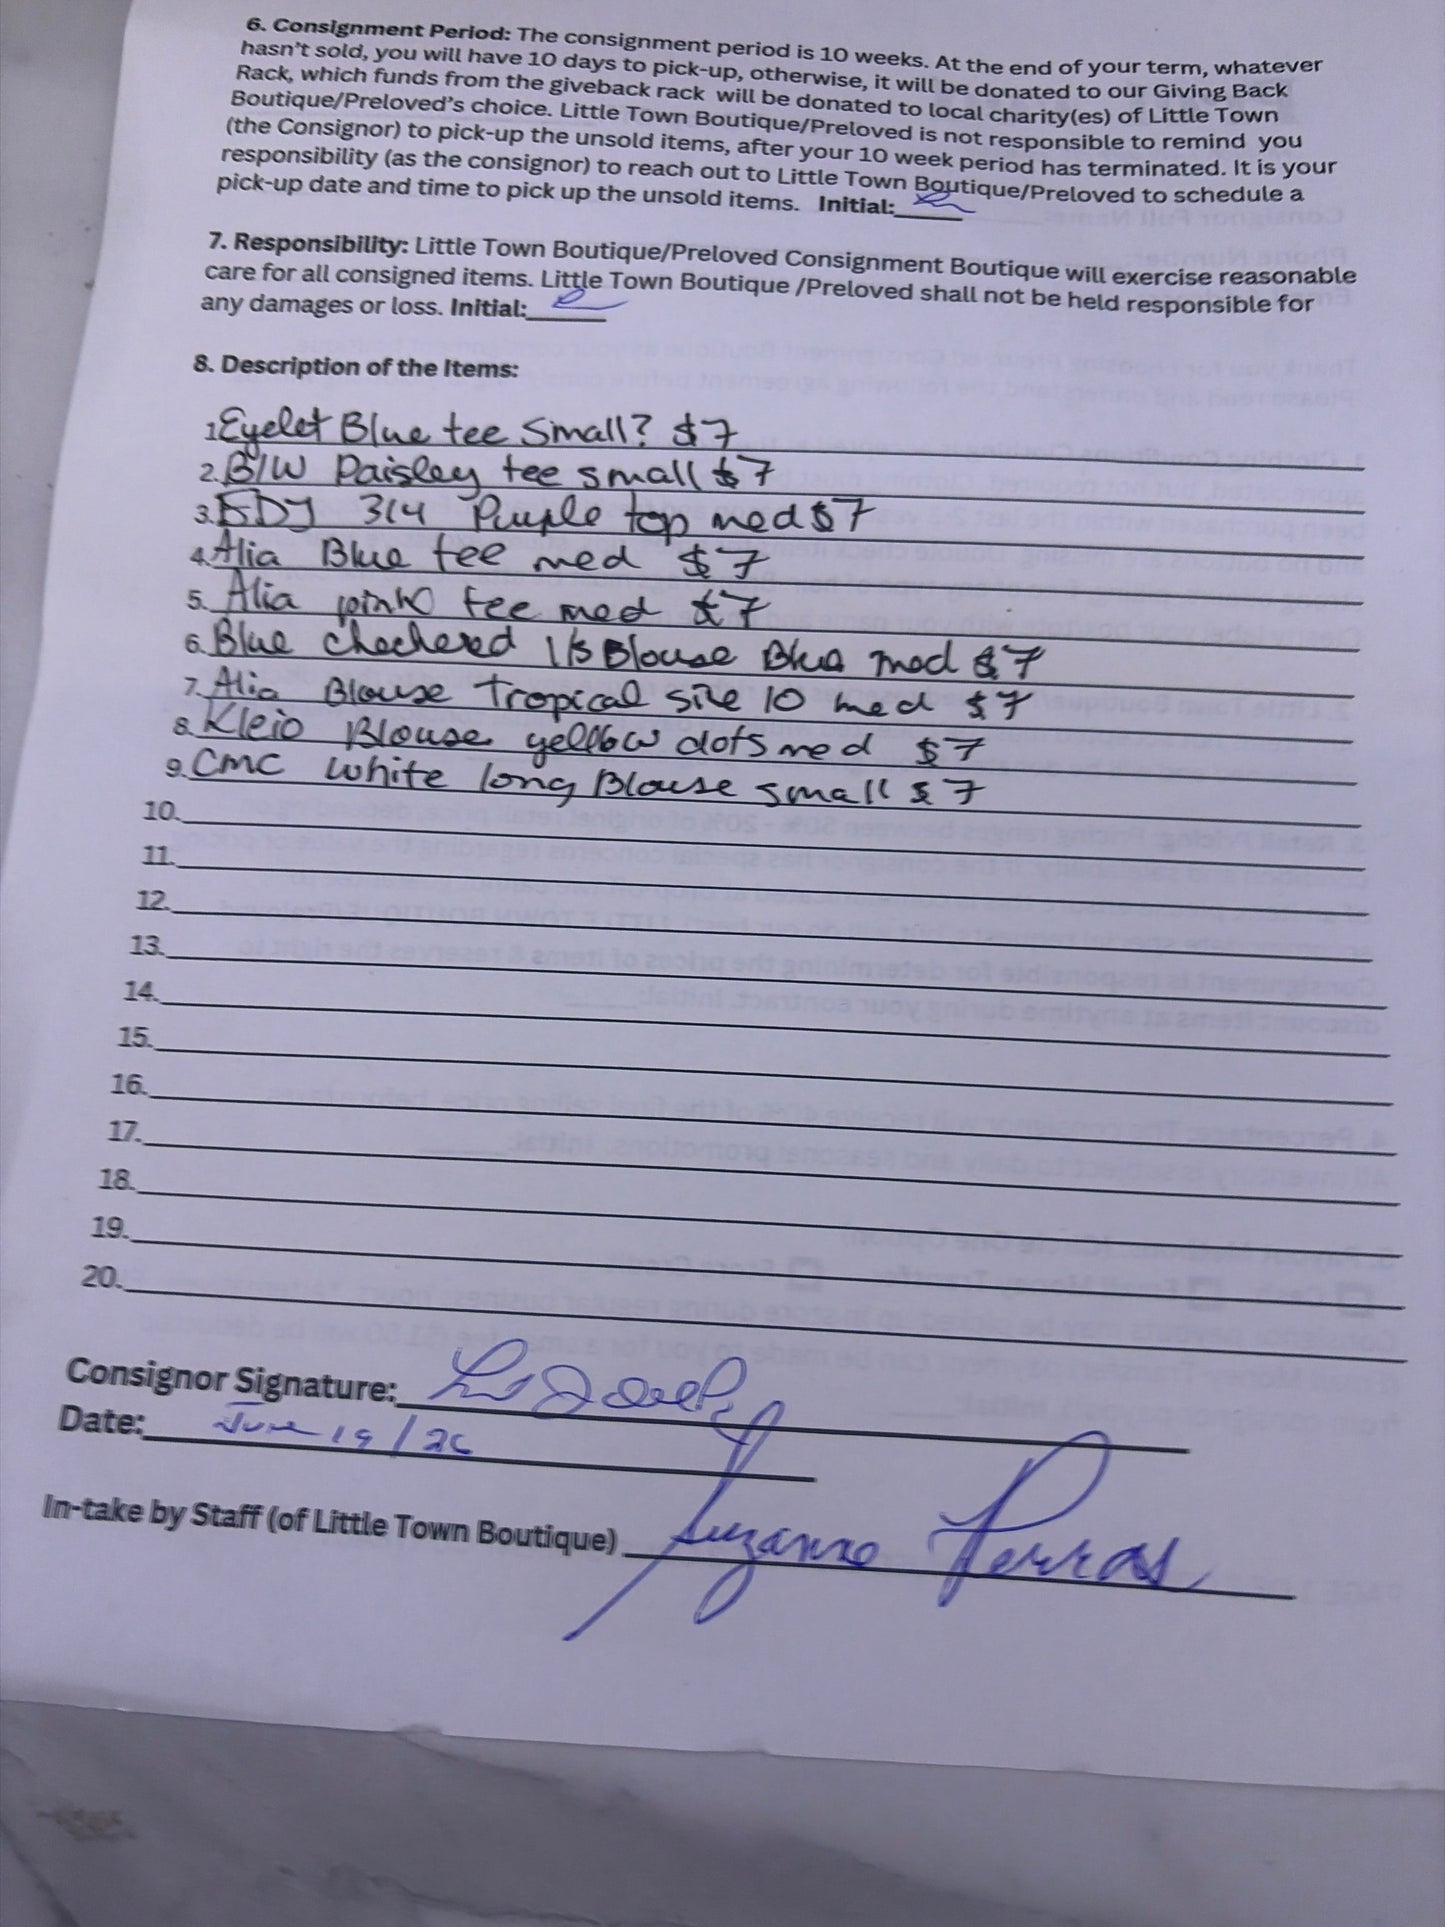 6. Consignment Period: The consignment period is 10 weeks. At the end of your term, whatever
hasn't sold, you will have 10 days to pick-up, otherwise, it will be donated to our Giving Back
Rack, which funds from the giveback rack will be donated to local charity(es) of Little Town
Boutique/Preloved's choice. Little Town Boutique/Preloved is not responsible to remind you
(the Consignor) to pick-up the unsold items, after your 10 week period has terminated. It is your
responsibility (as the consignor) to reach out to Little Town Boutique/Preloved to schedule a
pick-up date and time to pick up the unsold items. Initial:
7. Responsibility: Little Town Boutique/Preloved Consignment Boutique will exercise reasonable
care for all consigned items. Little Town Boutique /Preloved shall not be held responsible for
any damages or loss. Initial:
8. Description of the Items:
1. Eyelet Blue tee Small? $7
2. B/W Paisley tee small $7
3. 314 Purple top med $7
4. Alia Blue tee med $7
5. Alia pink tee med $7
6. Blue checkered l/s Blouse Blue med $7
7. Alia Blouse Tropical size 10 med $7
8. Kleio Blouse yellow dots med $7
9. CMC white long Blouse small $7
10.
11.
12.
13.
14.
15.
16.
17.
18.
19.
20.
Consignor Signature:
Date: June 19/26
In-take by Staff (of Little Town Boutique) Suzanne Perras